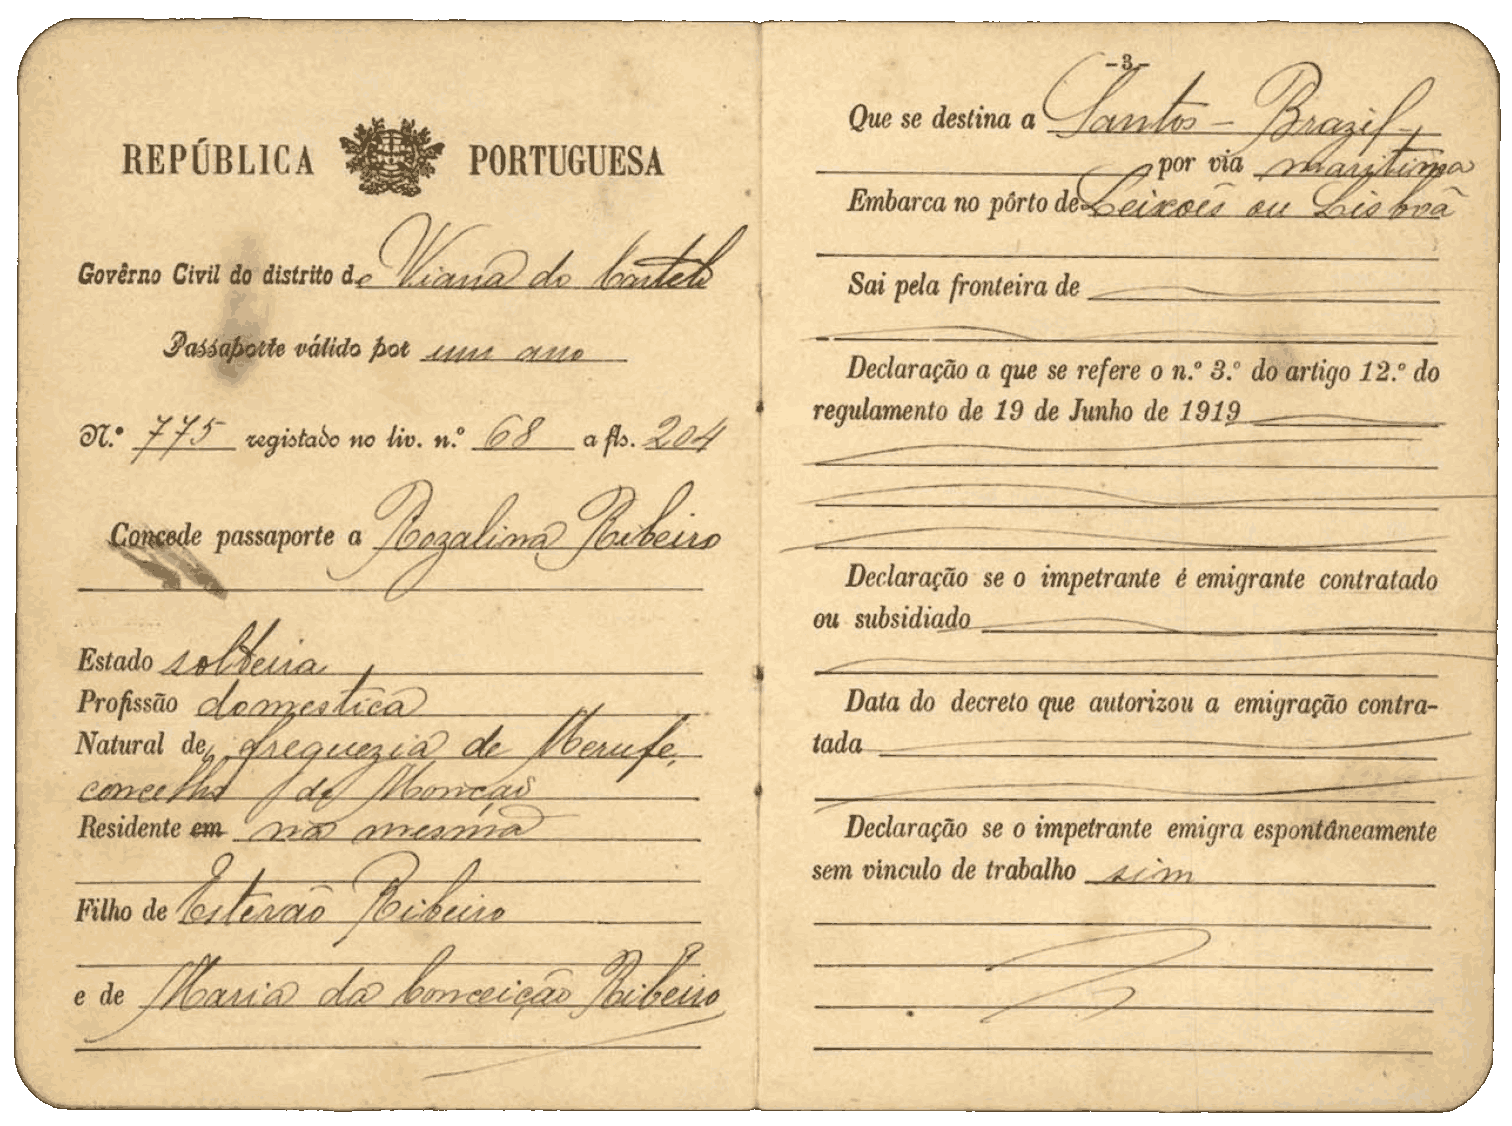 REPÚBLICA PORTUGUESA
Govêrno Civil do distrito de Viana do Castelo
Passaporte válido por um ano
N.º 775 registado no liv. n.º 68 a fls. 204
Concede passaporte a Rozalina Ribeiro
Estado solteira
Profissão domestica
Natural de freguezia de Merufe,
concelho de Monção
Residente em na mesma
Filho de Estevão Ribeiro
e de Maria da Conceição Ribeiro
-3-
Que se destina a Santos - Brazil -
por via maritima
Embarca no pôrto de Leixões ou Lisboa
Sai pela fronteira de
Declaração a que se refere o n.º 3.º do artigo 12.º do
regulamento de 19 de Junho de 1919
Declaração se o impetrante é emigrante contratado
ou subsidiado
Data do decreto que autorizou a emigração contra-
tada
Declaração se o impetrante emigra espontâneamente
sem vinculo de trabalho sim